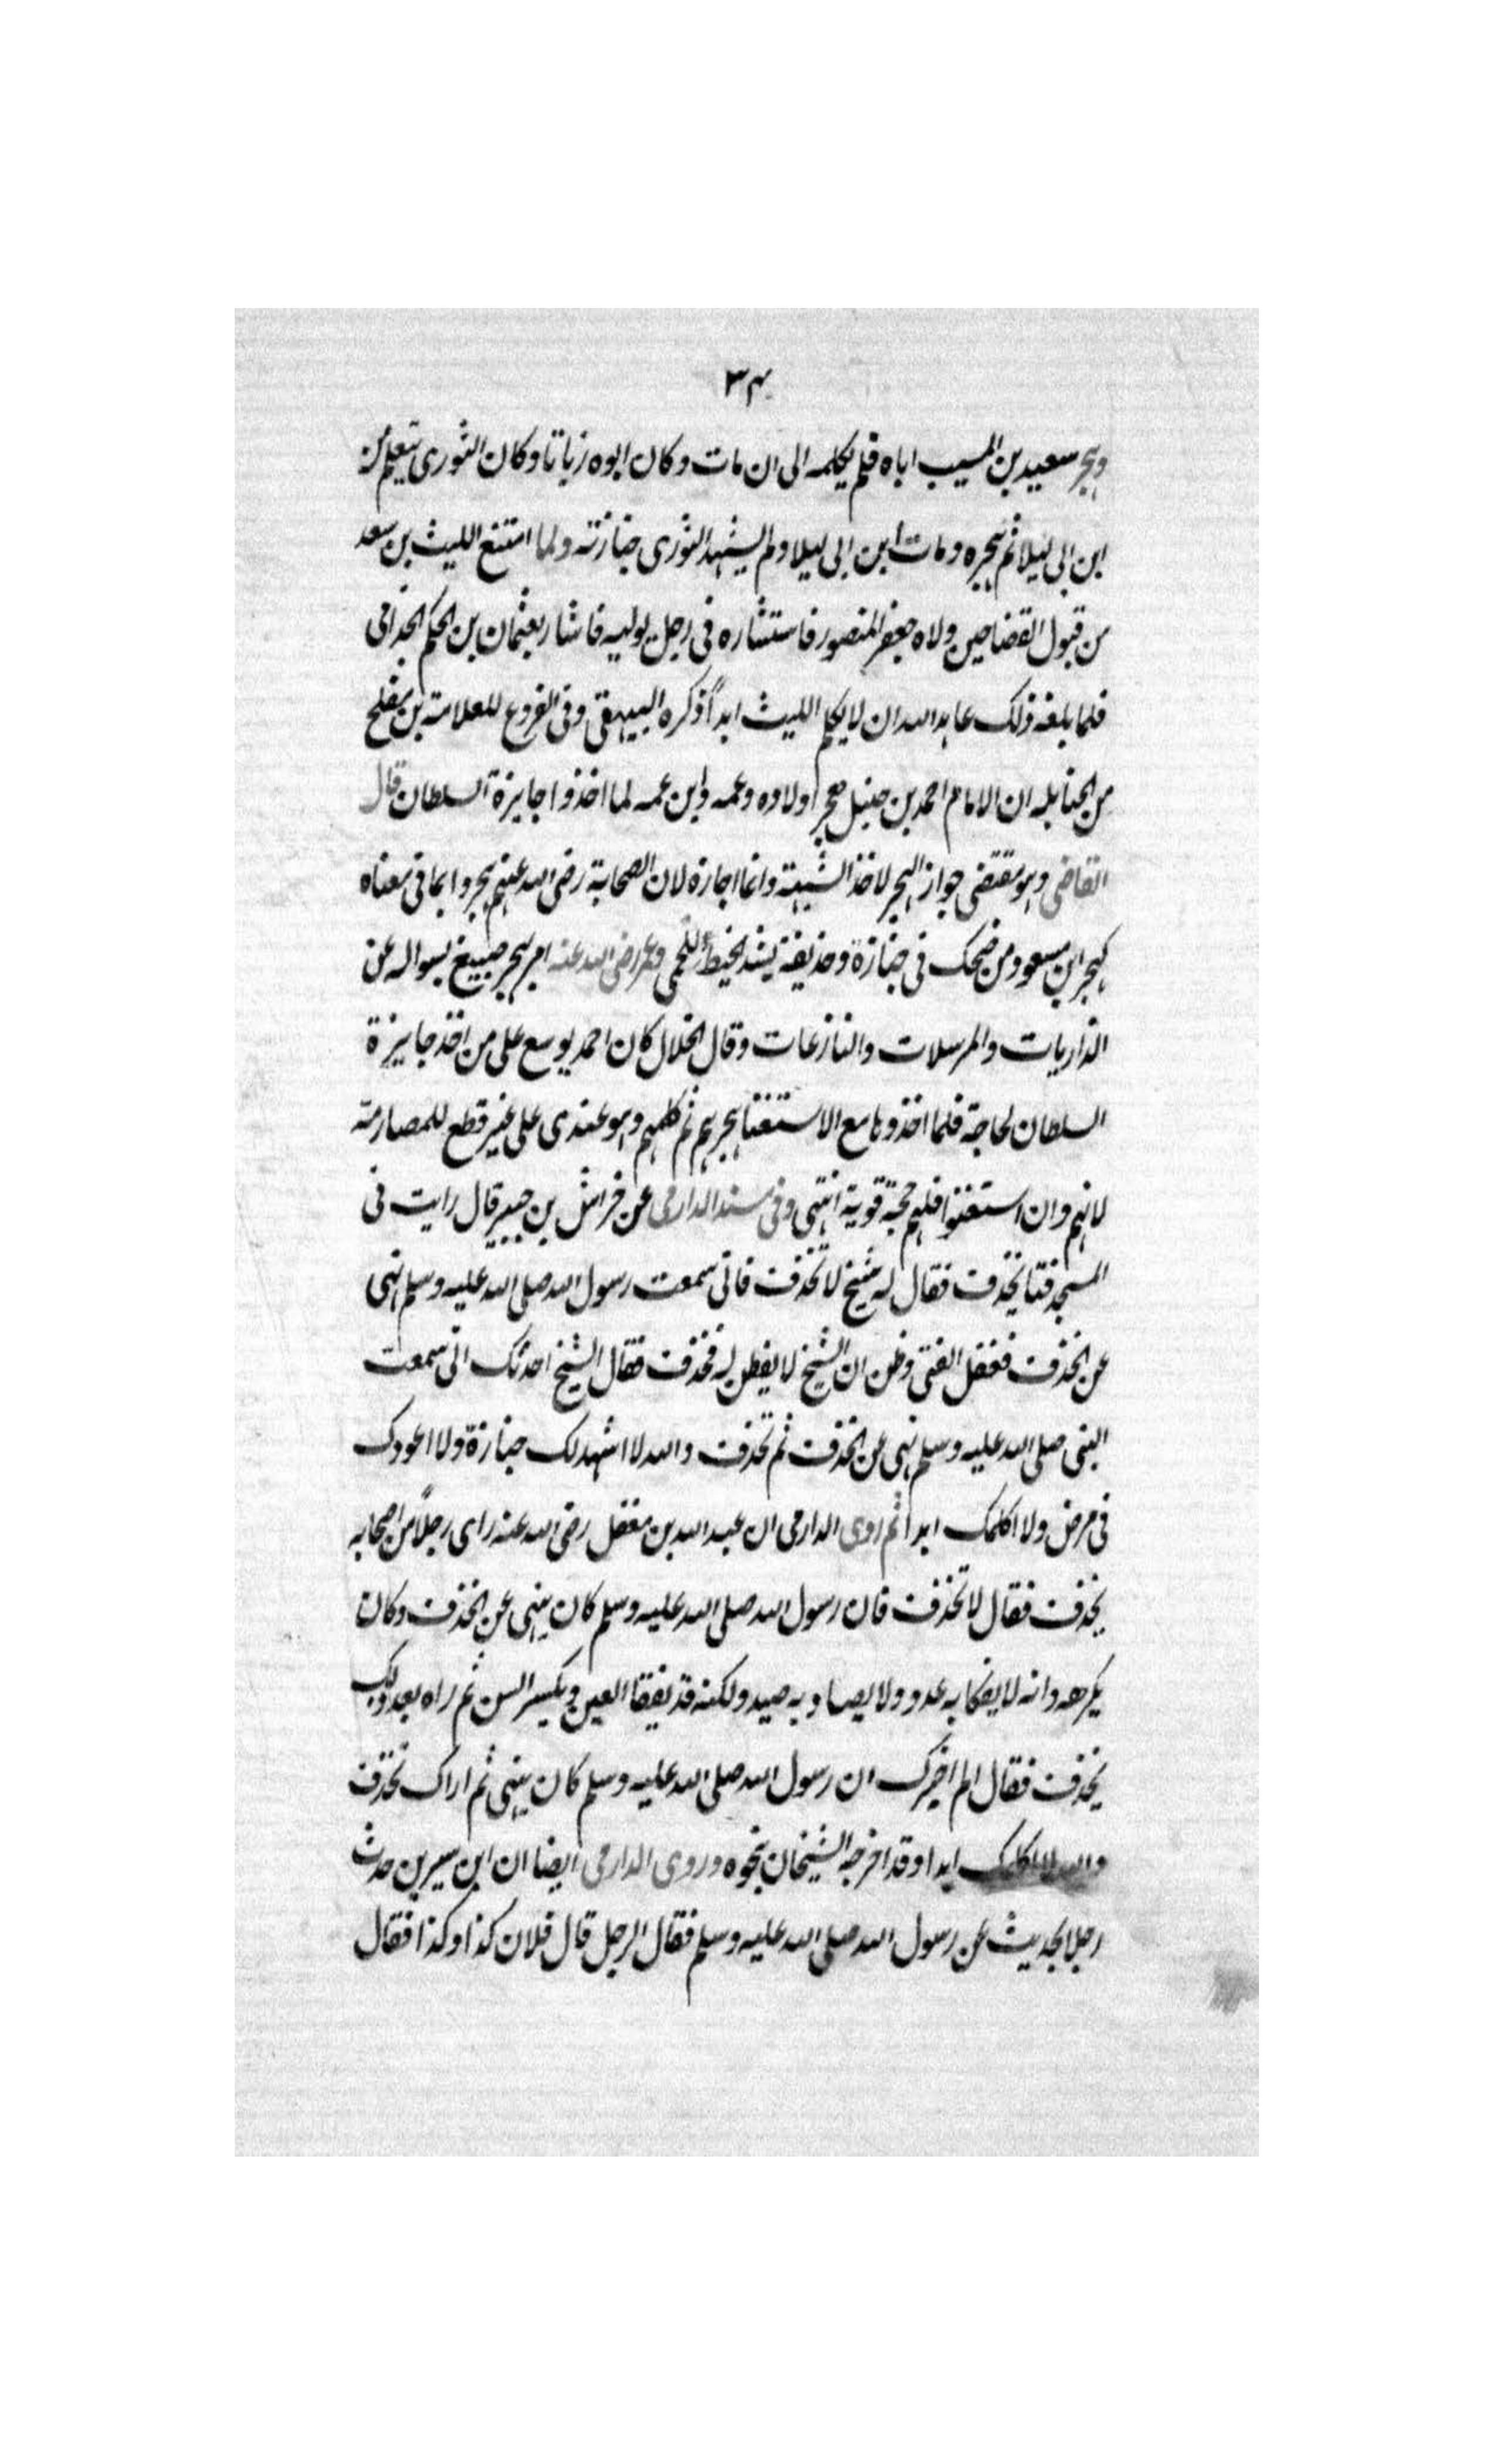 ٣٤
وهجر سعيد بن المسيب اباه فلم يكلمه الى ان مات وكان ابوه زياتا وكان الثورى يتعلم من
ابن ابى ليلا ثم هجره ومات ابن ابى ليلا ولم يشهد الثورى جنازته ولما امتنع الليث بن سعد
من قبول القضا حين ولاه جعفر المنصور فاستشاره فى رجل يوليه فاشار بعثمان بن الحكم الجذامى
فلما بلغه ذلك عاهد الله ان لا يكلم الليث ابداً ذكره البيهقى وفى الفروع للعلامة بن مفلح
من الحنابله ان الامام احمد بن حنبل هجر اولاده وعمه وابن عمه لما اخذوا جايزة السلطان قال
القاضى وهو يقتضى جواز الهجر لاخذ الشبهة وانما اجازه لان الصحابة رضى الله عنهم هجروا بما فى معناه
كهجر ابن مسعود من ضحك فى جنازة وحذيفة بشد الخيط للحمى وعمر رضى الله عنه امر بهجر صبيغ بسواله عن
الذاريات والمرسلات والنازعات وقال الخلال كان احمد يوسع على من اخذ جايزة
السلطان لحاجة فلما اخذوها مع الاستغنا هجرهم ثم كلمهم وهو عندى على غير قطع للمصارمة
لانهم وان استغنوا فلهم حجة قوية انتهى وفى مسند الدارمى عن خراش بن جبير قال رايت فى
المسجد فتا يخذف فقال له شيخ لا تخذف فانى سمعت رسول الله صلى الله عليه وسلم نهى
عن الخذف فغفل الفتى وظن ان الشيخ لا يفطن له فخذف فقال الشيخ احدثك انى سمعت
النبى صلى الله عليه وسلم نهى عن الخذف ثم تخذف والله لا اشهد لك جنازة ولا اعودك
فى مرض ولا اكلمك ابدا ثم روى الدارمى ان عبد الله بن مغفل رضى الله عنه راى رجلاً من اصحابه
يخذف فقال لا تخذف فان رسول الله صلى الله عليه وسلم كان ينهى عن الخذف وكان
يكرهه وانه لا ينكا به عدو ولا يصاد به صيد ولكنه قد يفقا العين ويكسر السن ثم راه بعد ذلك
يخذف فقال الم اخبرك ان رسول الله صلى الله عليه وسلم كان ينهى ثم اراك تخذف
والله لا اكلمك ابدا وقد اخرجه الشيخان بنحوه وروى الدارمى ايضا ان ابن سيرين حدث
رجلا بحديث عن رسول الله صلى الله عليه وسلم فقال الرجل قال فلان كذا وكذا فقال